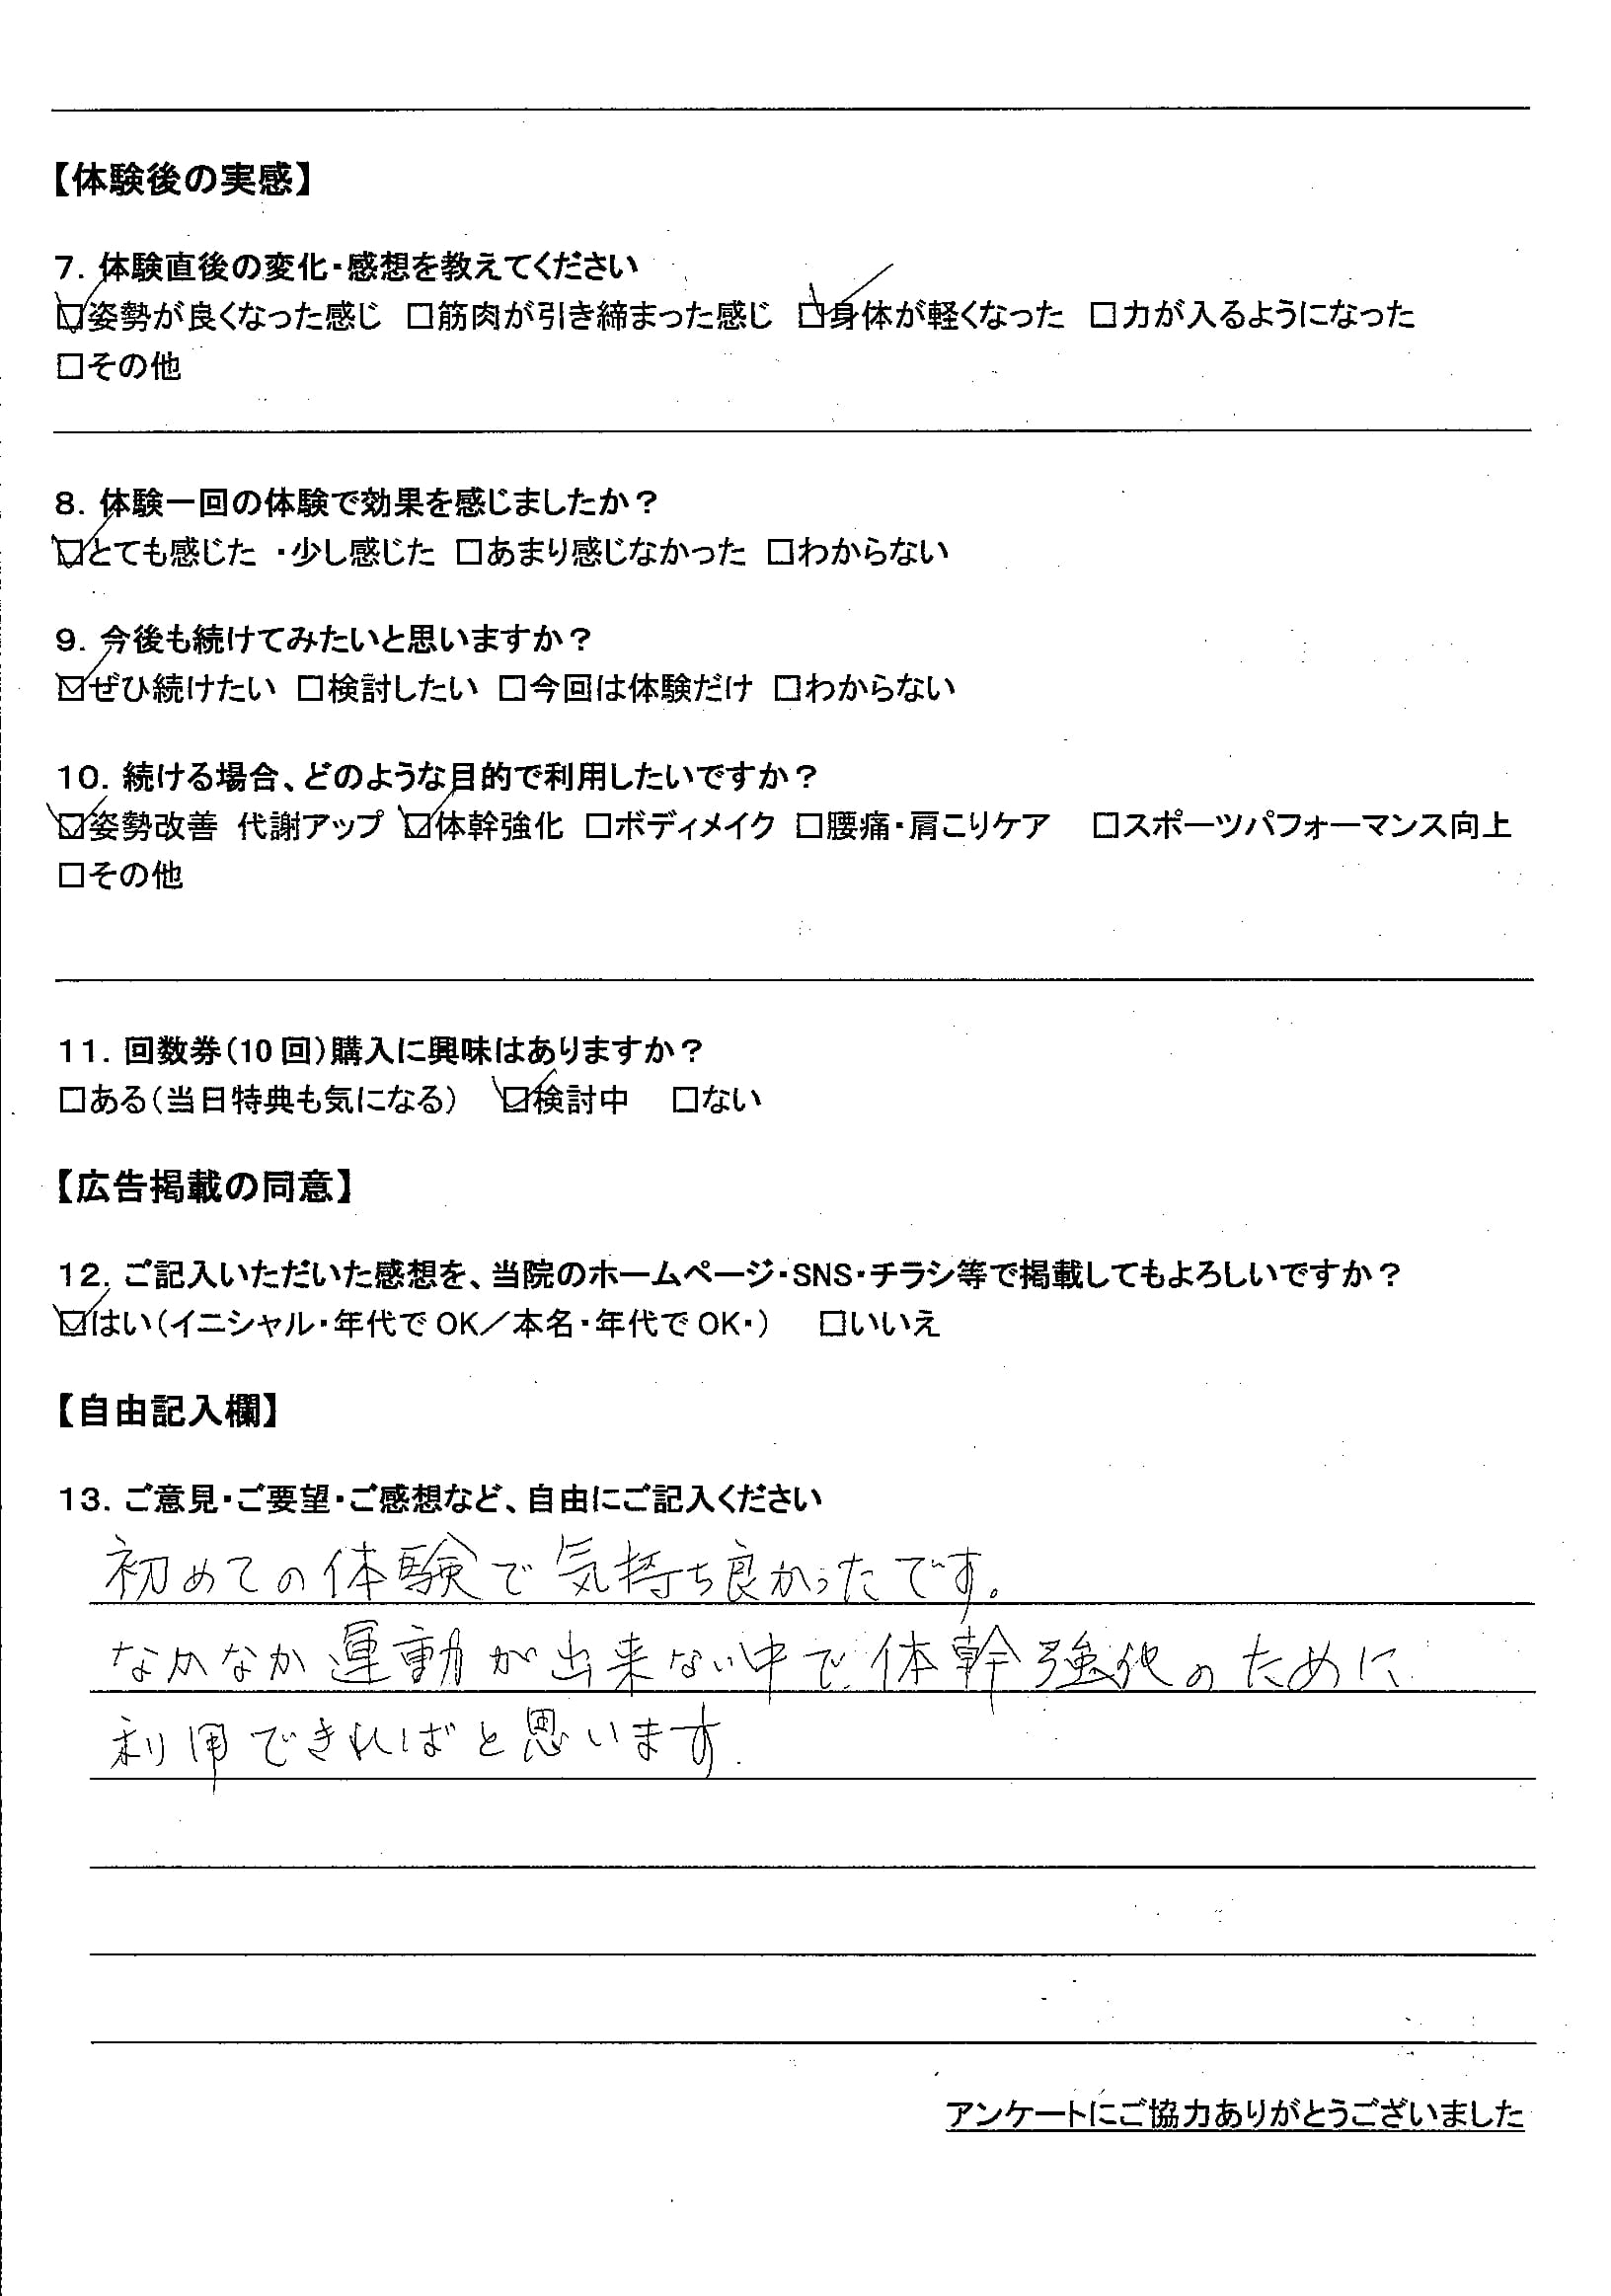 【体験後の実感】
7. 体験直後の変化・感想を教えてください
☑姿勢が良くなった感じ □筋肉が引き締まった感じ ☑身体が軽くなった □力が入るようになった
□その他
8. 体験一回の体験で効果を感じましたか？
☑とても感じた ・少し感じた □あまり感じなかった □わからない
9. 今後も続けてみたいと思いますか？
☑ぜひ続けたい □検討したい □今回は体験だけ □わからない
10. 続ける場合、どのような目的で利用したいですか？
☑姿勢改善 代謝アップ ☑体幹強化 □ボディメイク □腰痛・肩こりケア □スポーツパフォーマンス向上
□その他
11. 回数券（10回）購入に興味はありますか？
□ある（当日特典も気になる） ☑検討中 □ない
【広告掲載の同意】
12. ご記入いただいた感想を、当院のホームページ・SNS・チラシ等で掲載してもよろしいですか？
☑はい（イニシャル・年代でOK／本名・年代でOK・） □いいえ
【自由記入欄】
13. ご意見・ご要望・ご感想など、自由にご記入ください
初めての体験で気持ち良かったです。
なかなか運動が出来ない中で体幹強化のために
利用できればと思います.
アンケートにご協力ありがとうございました